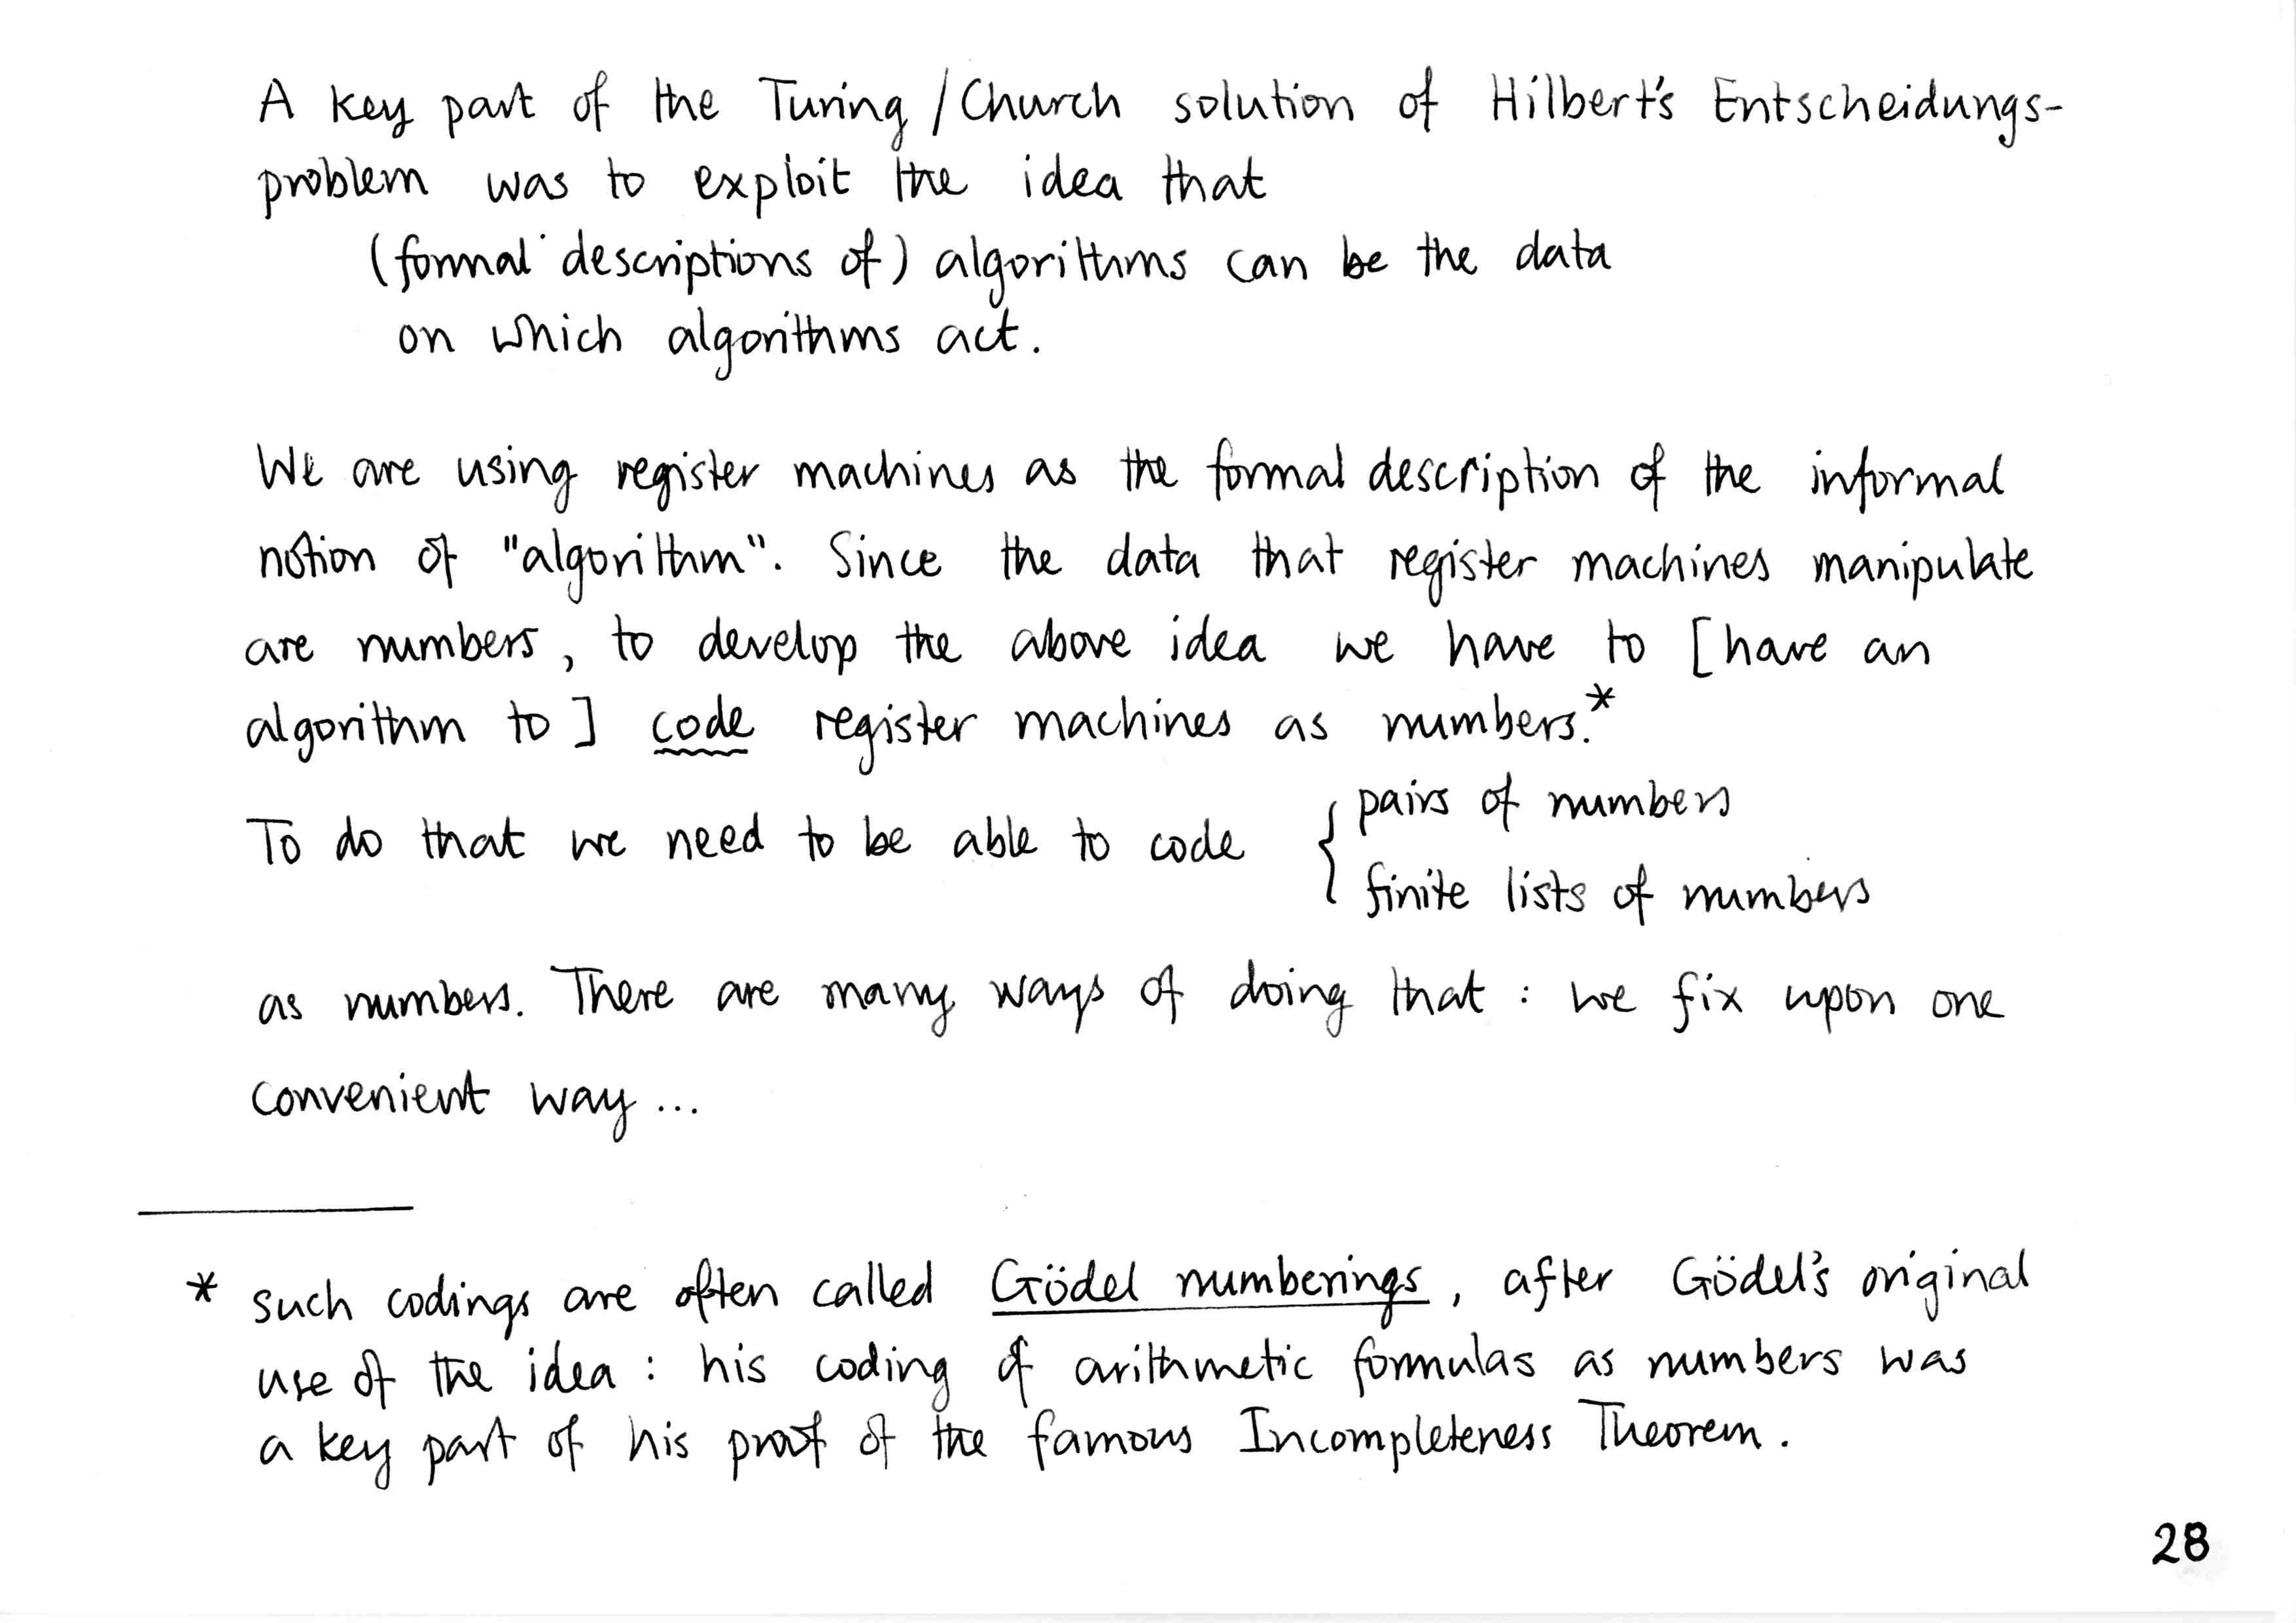 A key part of the Turing/Church solution of Hilbert's Entscheidungs-
problem was to exploit the idea that
(formal descriptions of) algorithms can be the data
on which algorithms act.
We are using register machines as the formal description of the informal
notion of "algorithm". Since the data that register machines manipulate
are numbers, to develop the above idea we have to [have an
algorithm to] code register machines as numbers.*
To do that we need to be able to code { pairs of numbers
finite lists of numbers
as numbers. There are many ways of doing that : we fix upon one
convenient way ...
* such codings are often called Gödel numberings, after Gödel's original
use of the idea : his coding of arithmetic formulas as numbers was
a key part of his proof of the famous Incompleteness Theorem.
28